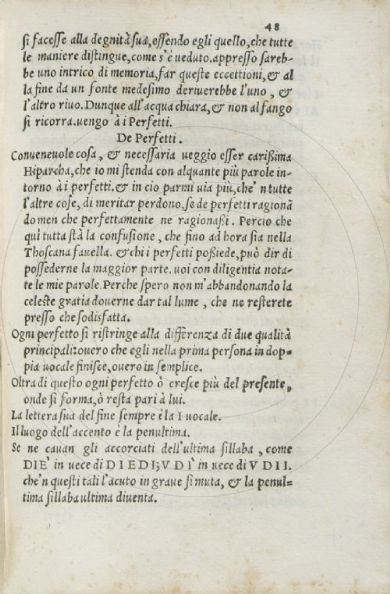 48
si facesse alla degnità sua, essendo egli quello, che tutte
le maniere distingue, come s'è ueduto. appresso sareb-
be uno intrico di memoria, far queste eccettioni, & al
la fine da un fonte medesimo deriuerebbe l'uno, &
l'altro riuo. Dunque all'acqua chiara, & non al fango
si ricorra. uengo à i Perfetti.
De Perfetti.
Conueneuole cosa, & necessaria ueggio esser carißima
Hiparcha, che io mi stenda con alquante più parole in-
torno à i perfetti. & in cio parmi uia più, che'n tutte
l'altre cose, di meritar perdono. se de perfetti ragionā
do men che perfettamente ne ragionaßi. Percio che
qui tutta stà la confusione, che fino ad hora sia nella
Thoscana fauella. & chi i perfetti poßiede, può dir di
possederne la maggior parte. uoi con diligentia nota-
te le mie parole. Perche spero non m'abbandonando la
celeste gratia douerne dar tal lume, che ne resterete
presso che sodisfatta.
Ogni perfetto si ristringe alla differenza di due qualità
principali: ouero che egli nella prima persona in dop-
pia uocale finisce, ouero in semplice.
Oltra di questo ogni perfetto ò cresce più del presente,
onde si forma, ò resta pari à lui.
La lettera sua del fine sempre è la I uocale.
Il luogo dell'accento è la penultima.
Se ne cauan gli accorciati dell'ultima sillaba, come
DIE' in uece di DIEDI; VDI' in uece di VDII.
che'n questi tali l'acuto in graue si muta, & la penul-
tima sillaba ultima diuenta.